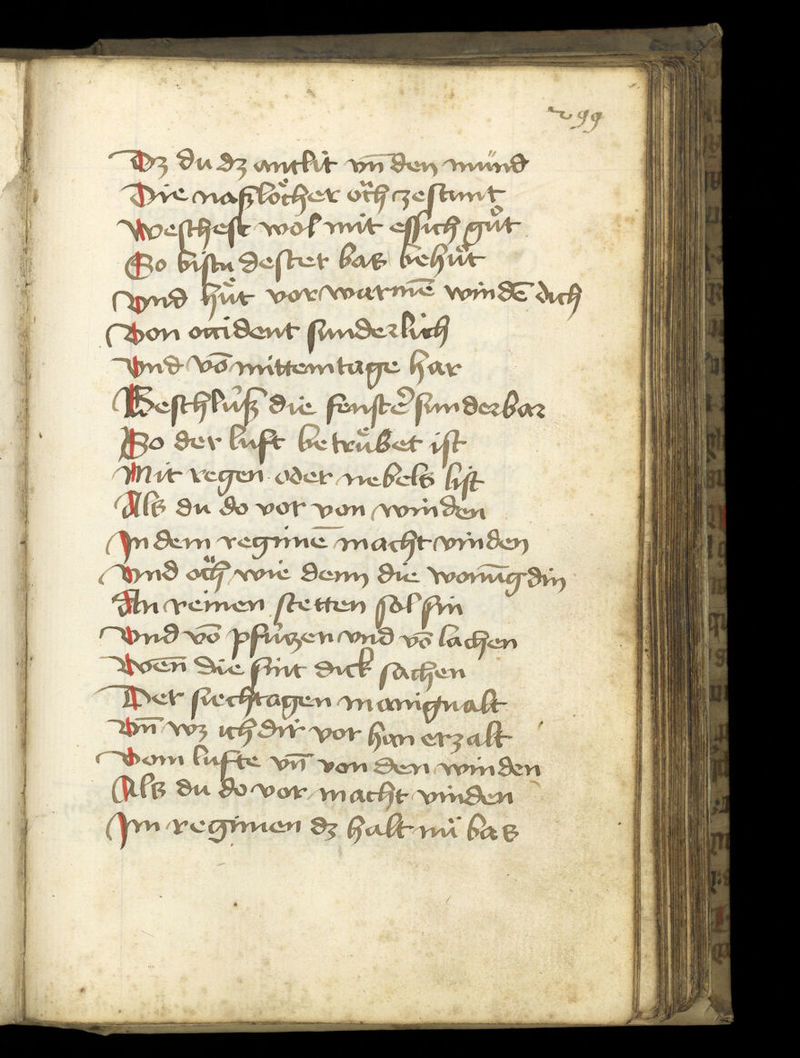 299
Dz du dz antlit vn̄ den mund
Die naßlöcher oͮch zestunt
Weschest wol mit essich guͦt
So bistu dester bas behuͤt
Vnd huͤt vor warmē windē dich
Von occident sunderlich
Vnd vō mittemtage har
Beschlúß die fenster̄ sunderbar
So der luft betruͤbet ist
Mit regen oder nebels list
Als du do vor von winden
In dem regimē macht vinden
Vnd oͮch wie denn die wonūg din
An reinen stetten sol sin
Vnd vō pfúzen vnd vō lachen
Wen̄ die sint dick sachen
Der siechtagen manigualt
Vn̄ wz ich dir vor han erzalt
Vom lufte vn̄ von den winden
Als du do vor macht vinden
Im regimen dz halt nuͦ bas